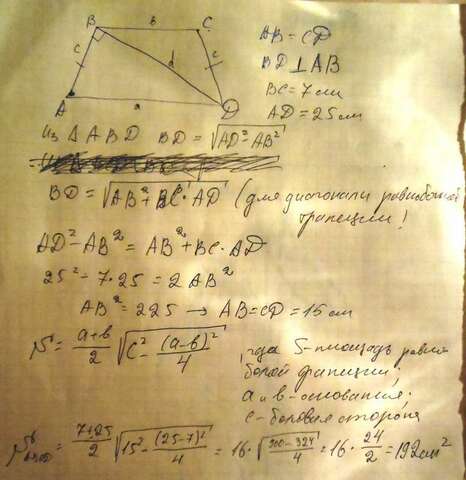 B в C
c d c
A a D
AB = CD
BD ⊥ AB
BC = 7 см
AD = 25 см
Из Δ ABD BD = √(AD² - AB²)
BD = √(AB² + BC · AD) (для диагонали равнобочной
трапеции!
AD² - AB² = AB² + BC · AD
25² - 7·25 = 2 AB²
AB² = 225 → AB = CD = 15 см
S = (a+в)/2 √(c² - (a-в)²/4)
где S - площадь равно
бокой трапеции;
a и в - основания;
c - боковая сторона
S ABCD = (7+25)/2 √(15² - (25-7)²/4) = 16 · √((900-324)/4) = 16 · 24/2 = 192 см²